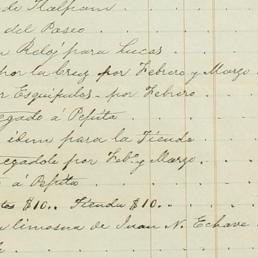 de Kalpam
del Paseo
Reloj para Lucas
por la cruz por Febrero y Marzo
Esquipulas por Febrero
egado á Pepita
idem para la Tienda
egadole por Feb.o y Marzo.
á Pepita
$10.. Tienda $10..
limosna de Juan N. Echave